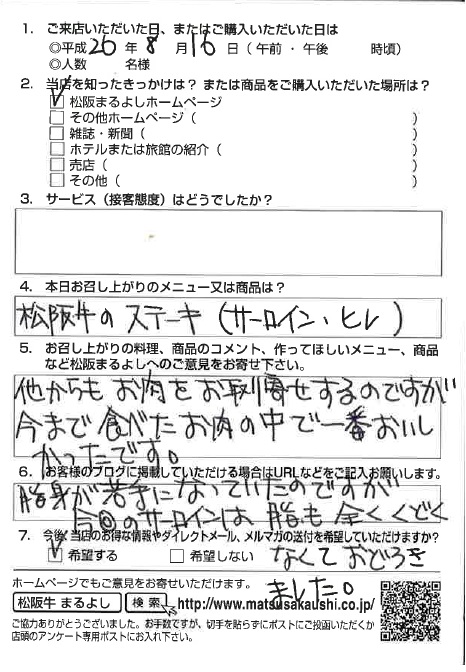 1. ご来店いただいた日、またはご購入いただいた日は
◎平成 26 年 8 月 16 日（午前・午後　　時頃）
◎人数　　名様
2. 当店を知ったきっかけは？ または商品をご購入いただいた場所は？
☑ 松阪まるよしホームページ
□ その他ホームページ（　　）
□ 雑誌・新聞（　　）
□ ホテルまたは旅館の紹介（　　）
□ 売店（　　）
□ その他（　　）
3. サービス（接客態度）はどうでしたか？
4. 本日お召し上がりのメニュー又は商品は？
松阪牛のステーキ（サーロイン、ヒレ）
5. お召し上がりの料理、商品のコメント、作ってほしいメニュー、商品
など松阪まるよしへのご意見をお寄せ下さい。
他からもお肉をお取り寄せするのですが
今まで食べたお肉の中で一番おいし
かったです。
6. お客様のブログに掲載していただける場合はURLなどをご記入お願いします。
脂身が苦手になっていたのですが
今回のサーロインは脂も全くくどく
7. 今後、当店のお得な情報やダイレクトメール、メルマガの送付を希望していただけますか？
☑ 希望する　□ 希望しない
なくておどろき
ました。
ホームページでもご意見をお寄せいただけます。
松阪牛 まるよし 検索 http://www.matsusakaushi.co.jp/
ご協力ありがとうございました。お手数ですが、切手を貼らずにポストにご投函いただくか
店頭のアンケート専用ポストにお入れ下さい。